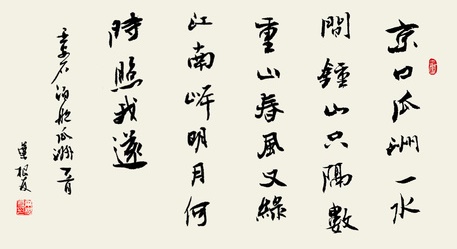 京口瓜洲一水
間鍾山只隔數
重山春風又綠
江南岸明月何
時照我還
王安石泊船瓜洲一首